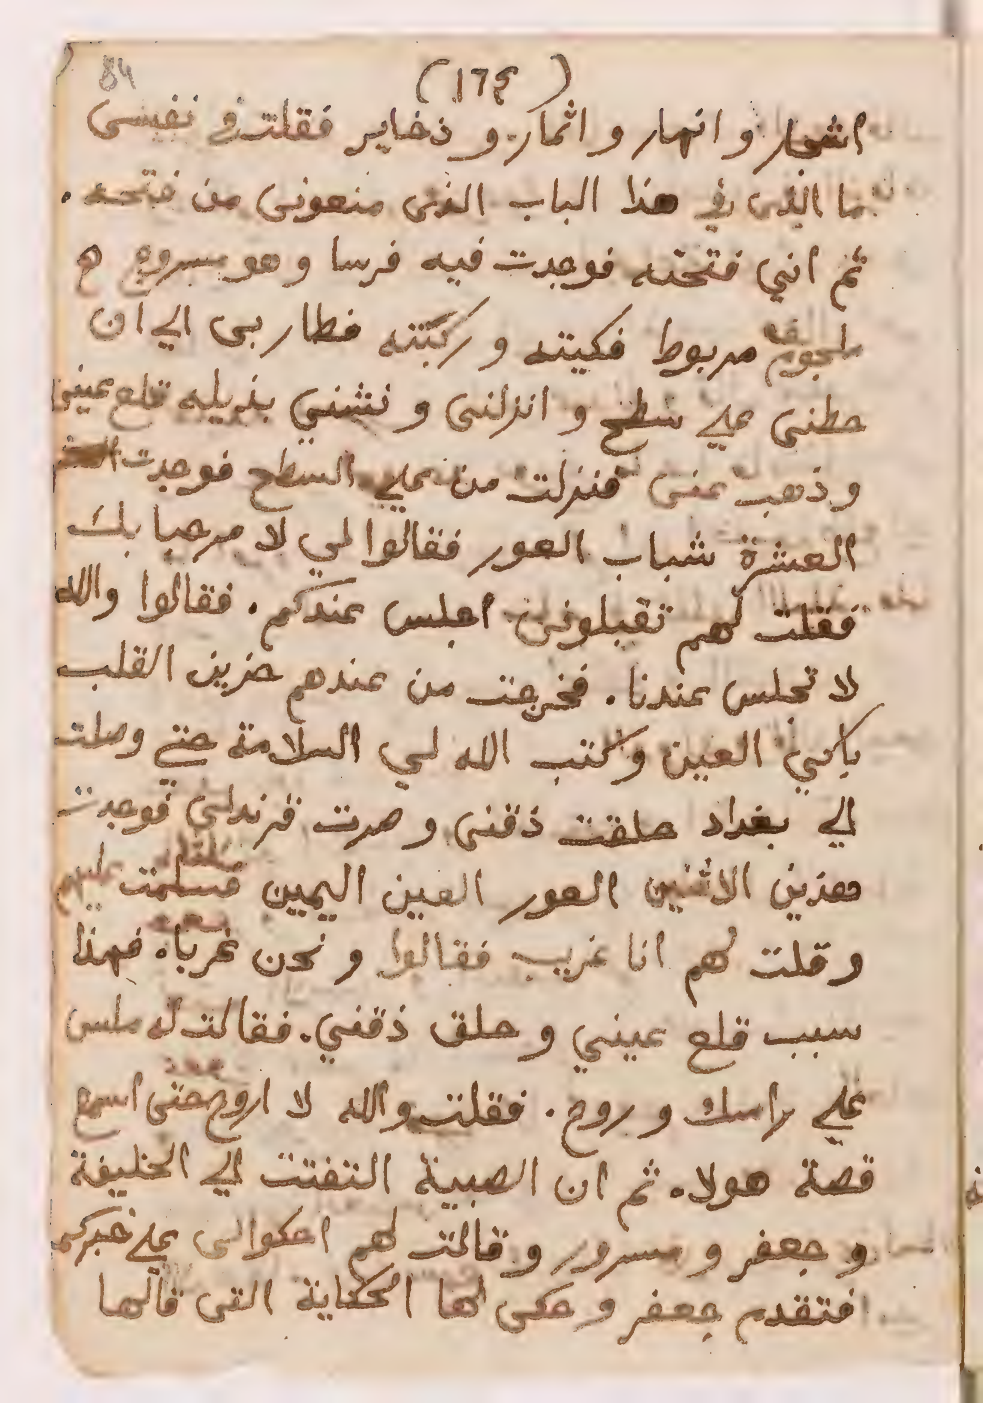 84
(١٦٤)
اشجار و انهار و اثمار و ذخاير فقلت في نفسى
ما الذى في هذا الباب الذى منعونى من فتحه .
ثم انني فتحته فوجدت فيه فرسا و هو مسروج
ملجوم مربوط فكيته و ركبته فطار بى الي ان
حطنى علي سطح و انزلنى و نشني بذيله قلع عينى
و ذهب عنى فنزلت من علي السطح فوجدت
العشرة شباب العور فقالوا لي لا مرحبا بك
فقلت لهم تقبلونى اجلس عندكم . فقالوا والله
لا تجلس عندنا . فخرجت من عندهم حزين القلب
باكي العين و كتب الله لي السلامة حتي وصلت
الي بغداد حلقت ذقنى و صرت قرندلى فوجدت
هذين الاثنين العور العين اليمين فسلمت عليهم
و قلت لهم انا غريب فقالوا و نحن غرباء فهذا
سبب قلع عيني و حلق ذقني . فقالت له ملس
علي راسك و روح . فقلت والله لا اروح حتى اسمع
قصة هولاء . ثم ان الصبية التفتت الي الخليفة
و جعفر و مسرور و قالت لهم احكوا لى علي خبركم
فتقدم جعفر و حكى لها الحكاية التى قالها